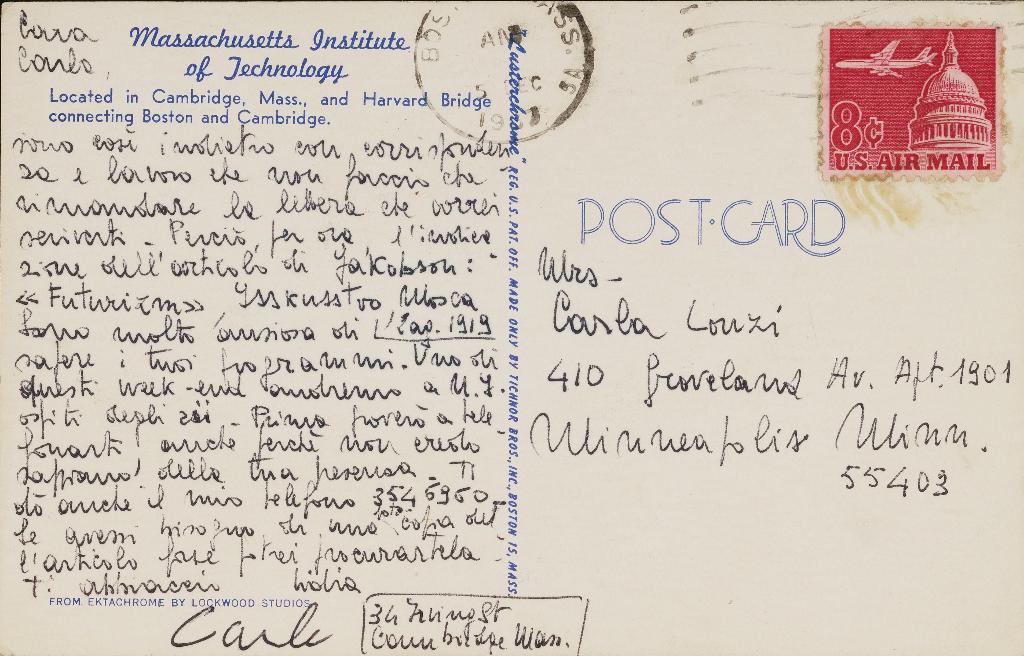 Cara
Carla,
Massachusetts Institute
of Technology
Located in Cambridge, Mass., and Harvard Bridge
connecting Boston and Cambridge.
sono così indietro con corrisponden
za e lavoro che non faccio che
rimandare la lettera che vorrei
scriverti - Perciò, per ora, l'indica
zione dell'articolo di Jakobson:
« Futurizm» Isskusstvo Mosca
Sono molto ansiosa di L'2 ag. 1919
sapere i tuoi programmi. Uno di
questi week-end andremo a N.Y.
ospiti degli zii - Prima proverò a tele
fonarti anche perché non credo
sapranno della tua presenza - Ti
dò anche il mio telefono 354 6960 -
Se avessi bisogno di una foto copia del
l'articolo forse potrei procurartela -
Ti abbraccio Lidia
FROM EKTACHROME BY LOCKWOOD STUDIOS
34 Irving St
Cambridge Mass.
"Lusterchrome" REG. U.S. PAT. OFF. MADE ONLY BY TICHNOR BROS., INC., BOSTON 15, MASS.
BOS ASS.
AM
5 EC
196
8¢
U.S. AIR MAIL
POST-CARD
Mrs -
Carla Lonzi
410 Groveland Av. Apt. 1901
Minneapolis Minn.
55403